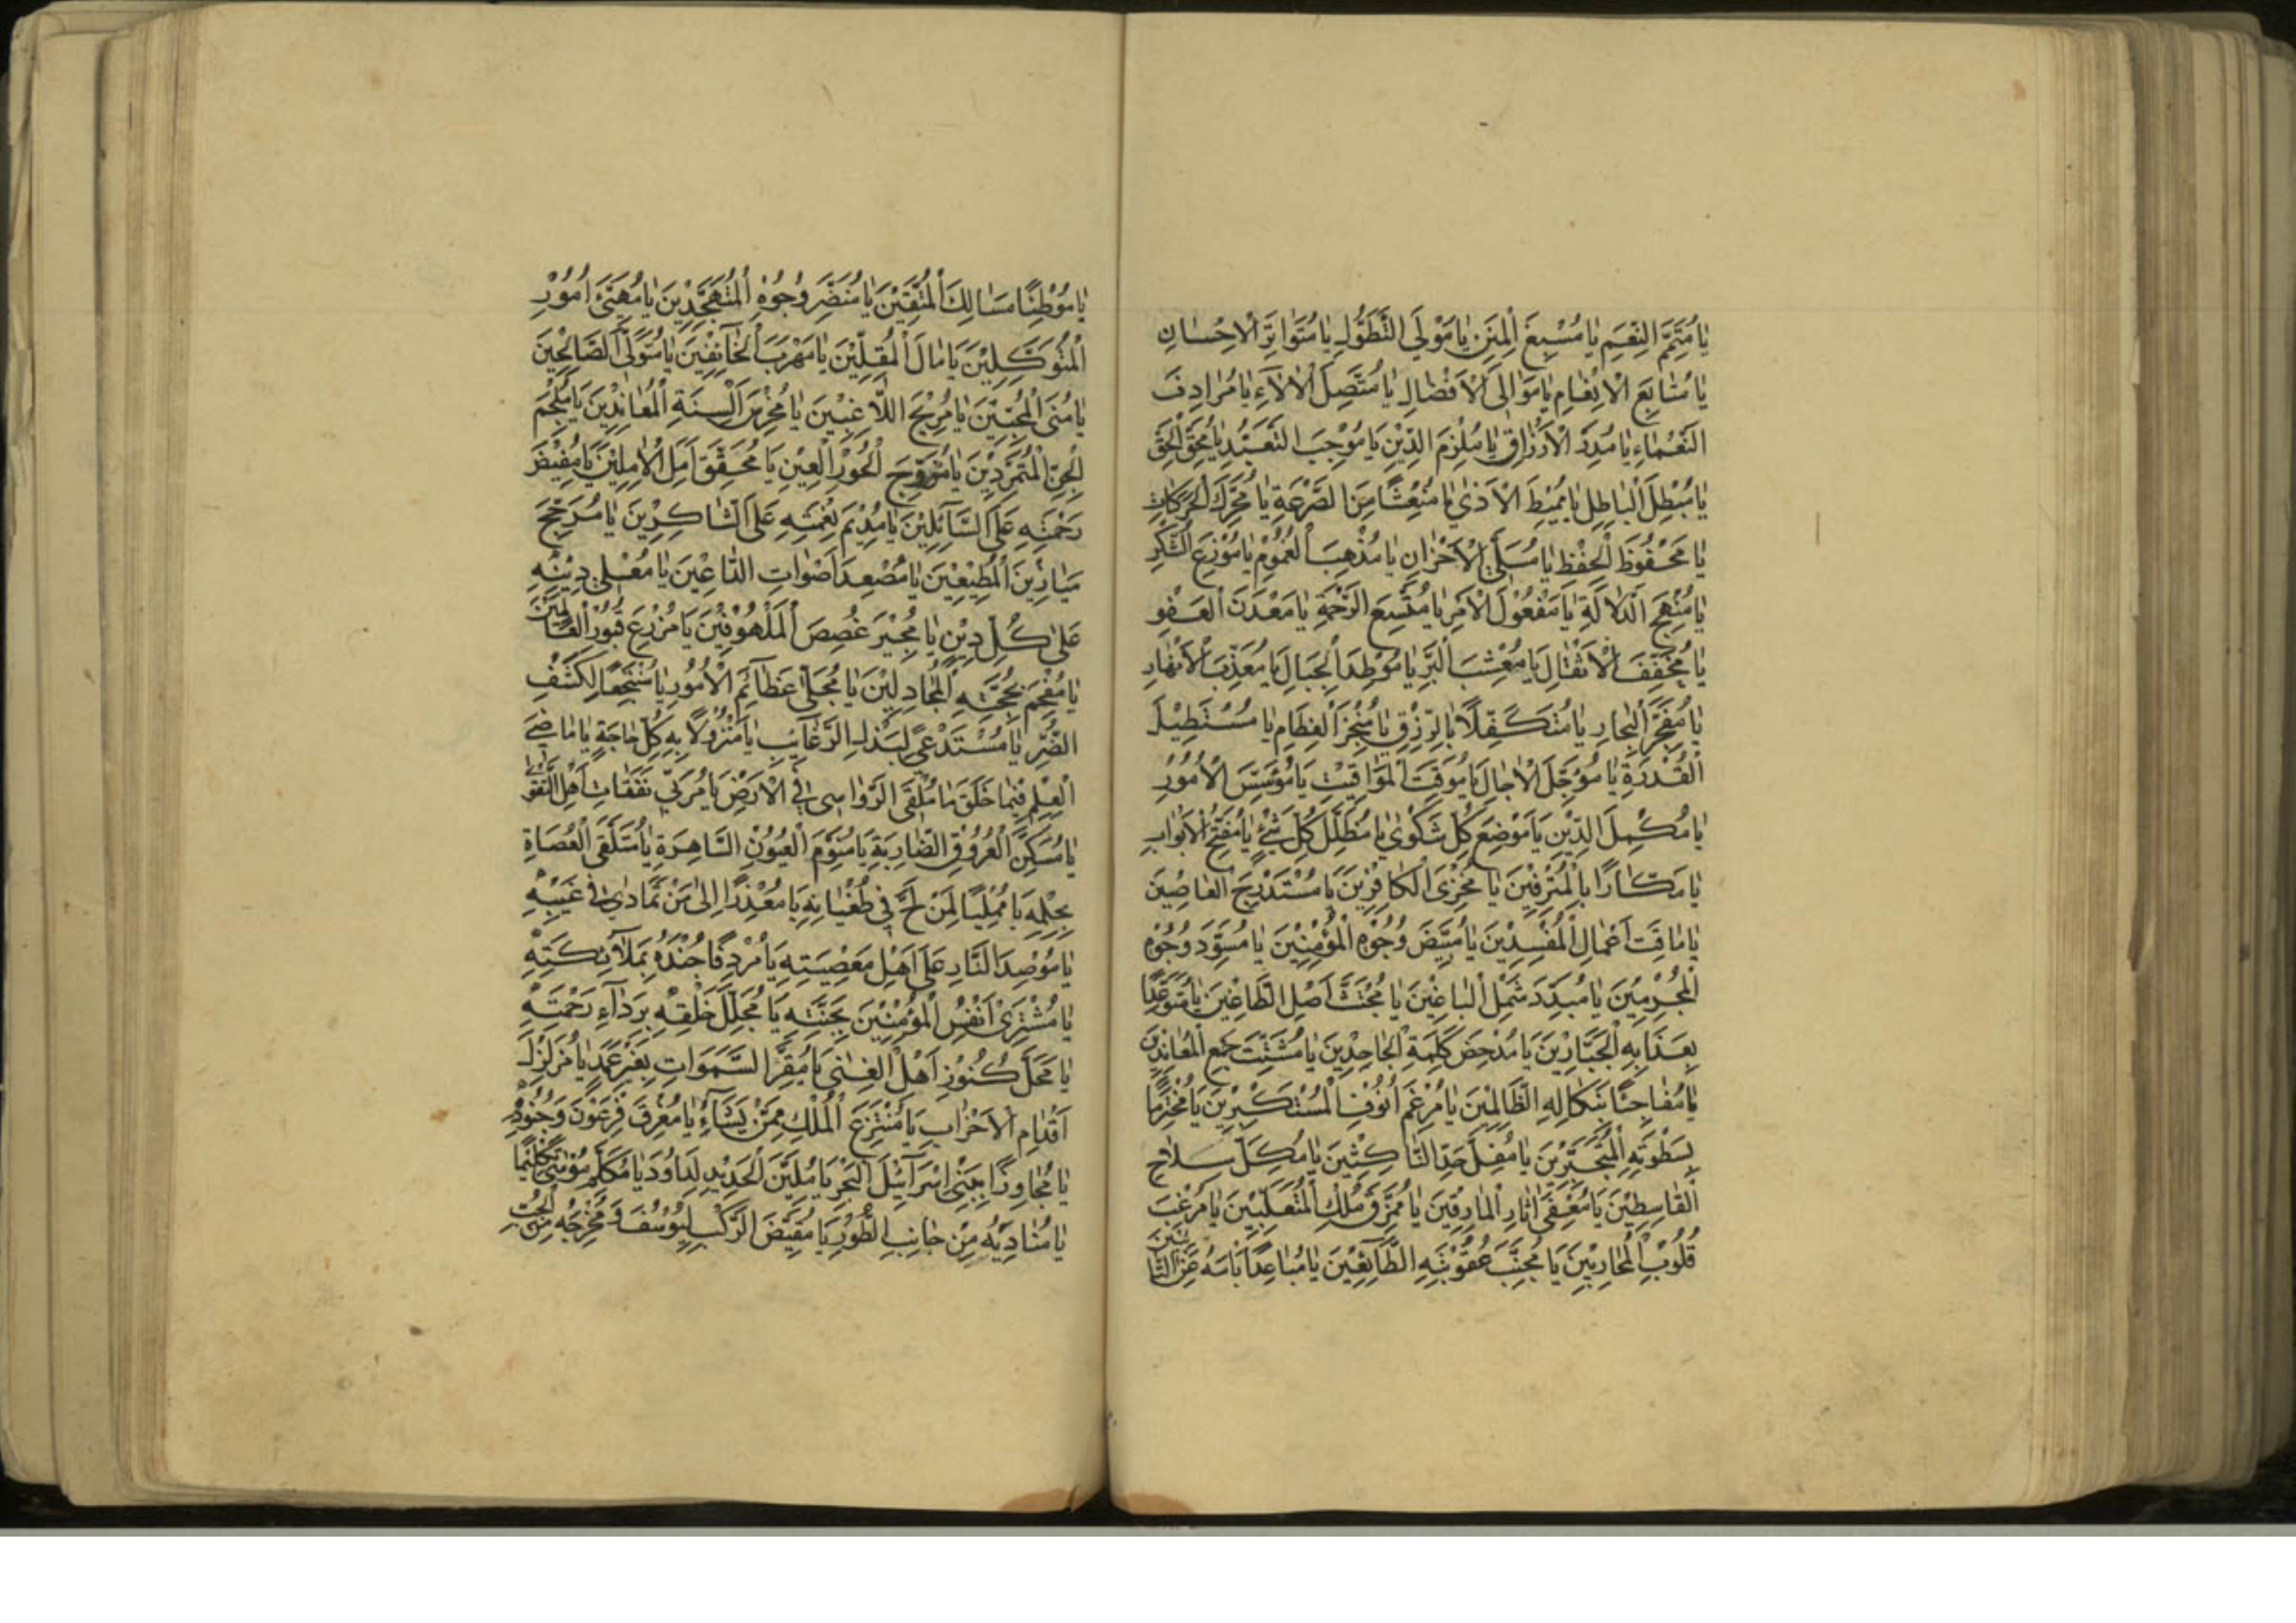 يَا مُتَمِّمَ النِّعَمِ يَا مُسْبِغَ الْمِنَنِ يَا مَوْلَى التَّطَوُّلِ يَا مُتَوَاتِرَ الْاِحْسَانِ
يَا مُتَابِعَ الْاِنْعَامِ يَا مَوَالِىَ الْاَفْضَالِ يَا مُتَّصِلَ الْاٰلَآءِ يَا مُرَادِفَ
النَّعْمَاءِ يَا مُدِرَّ الْاَرْزَاقِ يَا مُلْزِمَ الدِّيْنِ يَا مُوْجِبَ التَّعَبُّدِ يَا مُحِقَّ الْحَقِّ
يَا مُبْطِلَ الْبَاطِلِ يَا مُمِيْطَ الْاَذٰى يَا مُنْعِشًا مِنَ الصَّرْعَةِ يَا مُحَرِّكَ الْحَرَكَاتِ
يَا مَحْفُوْظَ الْحِفْظِ يَا مُسَلِّىَ الْاَحْزَانِ يَا مُذْهِبَ الْغُمُوْمِ يَا مُوْزِعَ الشُّكْرِ
يَا مُنْهِجَ الدَّلَالَةِ يَا مَفْعُوْلَ الْاَمْرِ يَا مُتَّسِعَ الرَّحْمَةِ يَا مَعْدَنَ الْعَفْوِ
يَا مُخَفِّفَ الْاَثْقَالِ يَا مُعْشِبَ الْبَرِّ يَا مُوَطِّدَ الْجِبَالِ يَا مُعَذِّبَ الْاَنْهَارِ
يَا مُفَجِّرَ الْبِحَارِ يَا مُتَكَفِّلًا بِالرِّزْقِ يَا مُنْخِرَ الْعِظَامِ يَا مُسْتَطِيْلَ
الْقُدْرَةِ يَا مُؤَجِّلَ الْاٰجَالِ يَا مُوَقِّتَ الْمَوَاقِيْتِ يَا مُؤَسِّسَ الْاُمُوْرِ
يَا مُكْمِلَ الدِّيْنِ يَا مَوْضِعَ كُلِّ شَكْوٰى يَا مُظَلِّلَ كُلِّ شَيْءٍ يَا مُفَتِّحَ الْاَبْوَابِ
يَا مَكَّارًا بِالْمُتْرَفِيْنَ يَا مُخْزِىَ الْكَافِرِيْنَ يَا مُسْتَدْرِجَ الْعَاصِيْنَ
يَا مَاقِتَ اَعْمَالِ الْمُفْسِدِيْنَ يَا مُبَيِّضَ وُجُوْهِ الْمُؤْمِنِيْنَ يَا مُسَوِّدَ وُجُوْهِ
الْمُجْرِمِيْنَ يَا مُبَدِّدَ شَمْلِ الْبَاغِيْنَ يَا مُجْتَثَّ اَصْلِ الطَّاغِيْنَ يَا مُتَوَعِّدًا
بِعَذَابِهِ الْجَبَّارِيْنَ يَا مُدْحِضَ كَلِمَةِ الْجَاحِدِيْنَ يَا مُشَتِّتَ جَمْعِ الْمُعَانِدِيْنَ
يَا مُفَاجِئًا بِنَكَالِهِ الظَّالِمِيْنَ يَا مُرْغِمَ اُنُوْفِ الْمُسْتَكْبِرِيْنَ يَا مُخْتَرِمًا
بِسَطْوَتِهِ الْمُتَجَبِّرِيْنَ يَا مُفِلَّ حَدِّ النَّاكِثِيْنَ يَا مُكِلَّ سِلَاحِ
الْقَاسِطِيْنَ يَا مُعَفِّىَ اٰثَارِ الْمَارِقِيْنَ يَا مُمَزِّقَ مُلْكِ الْمُتَغَلِّبِيْنَ يَا مُرْعِبَ
قُلُوْبِ الْمُحَارِبِيْنَ يَا مُجَنِّبَ عُقُوْبَتِهِ الطَّآئِعِيْنَ يَا مُبَاعِدًا بَاْسَهُ عَنِ التَّائِبِيْنَ
يَا مُوَطِّئًا مَسَالِكَ الْمُتَّقِيْنَ يَا مُنَضِّرَ وُجُوْهِ الْمُتَهَجِّدِيْنَ يَا مُهَيِّئَ اُمُوْرِ
الْمُتَوَكِّلِيْنَ يَا مَالَ الْمُقِلِّيْنَ يَا مَهْرَبَ الْخَآئِفِيْنَ يَا مُتَوَلِّىَ الصَّالِحِيْنَ
يَا مُنَى الْمُحِبِّيْنَ يَا مُرِيْحَ اللَّاغِبِيْنَ يَا مُخْرِسَ اَلْسِنَةِ الْمُعَانِدِيْنَ يَا مُلْجِمَ
الْجِنِّ الْمُتَمَرِّدِيْنَ يَا مُزَوِّجَ الْحُوْرِ الْعِيْنِ يَا مُحَقِّقَ اَمَلِ الْاٰمِلِيْنَ يَا مُفِيْضَ
رَحْمَتِهِ عَلَى السَّآئِلِيْنَ يَا مُدِيْمَ نِعْمَتِهِ عَلَى الشَّاكِرِيْنَ يَا مُرَجِّحَ
مَيَازِيْنَ الْمُطِيْعِيْنَ يَا مُصْعِدَ اَصْوَاتِ الدَّاعِيْنَ يَا مُعْلِىَ دِيْنِهِ
عَلٰى كُلِّ دِيْنٍ يَا مُجِيْرَ غُصَصِ الْمَلْهُوْفِيْنَ يَا مُزْرِعَ قُبُوْرِ الْعَالَمِيْنَ
يَا مُفْحِمَ بِحُجَّتِهِ الْمُجَادِلِيْنَ يَا مُجَلِّىَ عَظَآئِمِ الْاُمُوْرِ يَا مُنْتَجَعًا لِكَشْفِ
الضُّرِّ يَا مُسْتَدْعًى لِبَذْلِ الرَّغَآئِبِ يَا مَنْزُوْلًا بِهِ كُلُّ حَاجَةٍ يَا مَاضِىَ
الْعِلْمِ فِيْمَا خَلَقَ يَا مُلْقِىَ الرَّوَاسِى فِى الْاَرْضِ يَا مُرَبِّيَ نَفَقَاتِ اَهْلِ التَّقْوٰى
يَا مُسَكِّنَ الْعُرُوْقِ الضَّارِبَةِ يَا مُنَوِّمَ الْعُيُوْنِ السَّاهِرَةِ يَا مُتَلَقِّىَ الْعُصَاةِ
بِحِلْمِهِ يَا مُمْلِيًا لِمَنْ لَجَّ فِي طُغْيَانِهِ يَا مُعْذِرًا اِلٰى مَنْ تَمَادٰى فِى غَيِّهِ
يَا مُوْصِدَ النَّارِ عَلٰى اَهْلِ مَعْصِيَتِهِ يَا مُرْدِفًا جُنْدَهُ بِمَلَآئِكَتِهِ
يَا مُشْتَرِىَ اَنْفُسِ الْمُؤْمِنِيْنَ بِجَنَّتِهِ يَا مُجَلِّلَ خَلْقِهِ بِرِدَآءِ رَحْمَتِهِ
يَا مَحَلَّ كُنُوْزِ اَهْلِ الْغِنٰى يَا مُقِرَّ السَّمٰوَاتِ بِغَيْرِ عَمَدٍ يَا مُزَلْزِلَ
اَقْدَامِ الْاَحْزَابِ يَا مُنْتَزِعَ الْمُلْكِ مِمَّنْ يَشَآءُ يَا مُغْرِقَ فِرْعَوْنَ وَجُنُوْدِهِ
يَا مُجَاوِزًا بِبَنِىْ اِسْرَآئِيْلَ الْبَحْرَ يَا مُلَيِّنَ الْحَدِيْدِ لِدَاوُدَ يَا مُكَلِّمَ مُوْسٰى تَكْلِيْمًا
يَا مُنَادِيَهُ مِنْ جَانِبِ الطُّوْرِ يَا مُقَيِّضَ الرَّكْبِ لِيُوْسُفَ وَ مُخْرِجَهُ مِنَ الْجُبِّ